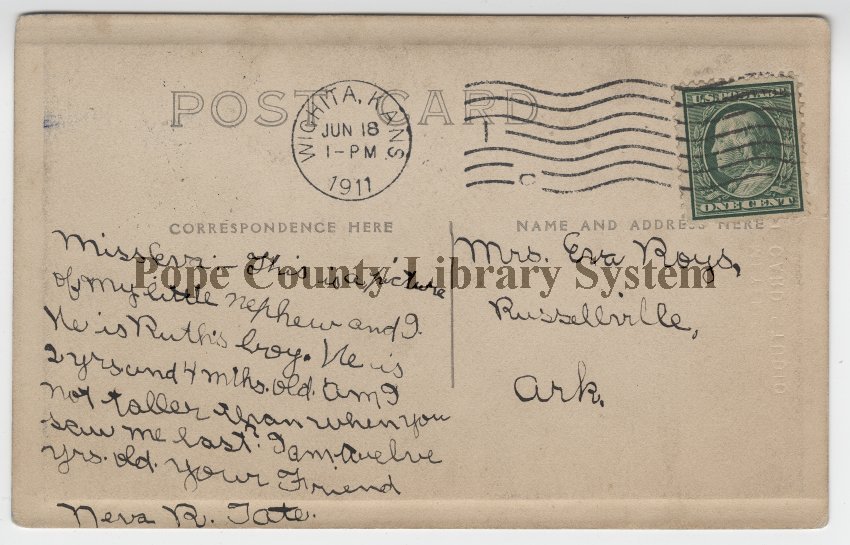 POST CARD
WICHITA, KANS
JUN 18
1-PM
1911
T
C
U.S. POSTAGE
ONE CENT
CORRESPONDENCE HERE
NAME AND ADDRESS HERE
Miss Eva:- This is a picture
of my little nephew and I.
He is Ruth's boy. He is
2 yrs and 4 mths. old. Am I
not taller than when you
saw me last? I am twelve
yrs. old. Your Friend
Neva R. Tate.
Mrs. Eva Roys,
Russellville,
Ark.
Pope County Library System